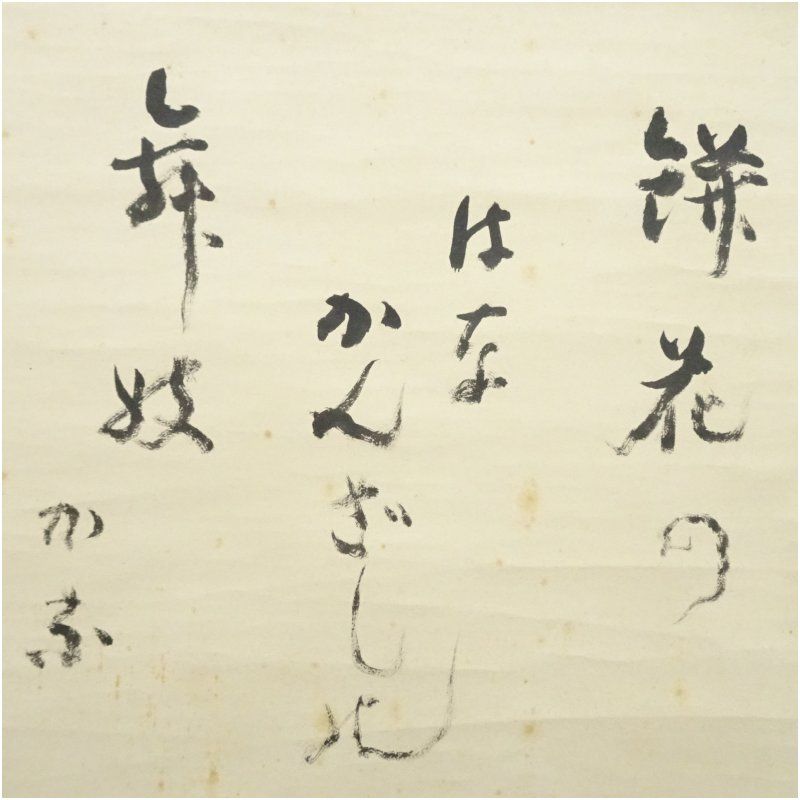 餅花の
はな
かんざしの
舞妓
かな